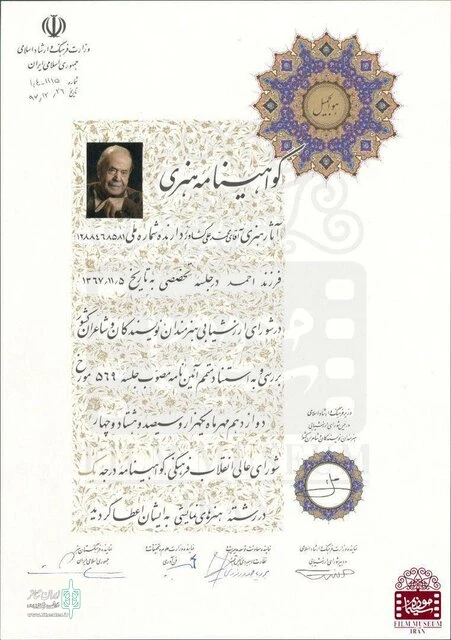 وزارت فرهنگ و ارشاد اسلامی
جمهوری اسلامی ایران
شماره
تاریخ ۹۷/۱۲/۲۶
هو الجمیل
گواهینامه هنری
آثار هنری آقای محمدعلی کشاورز دارنده شماره ملی ۱۲۸۸۴۶۸۵۸۱
فرزند احمد در جلسه تخصصی به تاریخ ۱۳۶۷/۱۱/۵
در شورای ارزشیابی هنرمندان نویسندگان و شاعران کشور
بررسی و به استناد متمم آئین نامه مصوب جلسه ۵۶۹ مورخ
دوازدهم مهرماه یکهزار و سیصد و هشتاد و چهار
شورای عالی انقلاب فرهنگی گواهینامه درجه یک
در رشته هنرهای نمایشی به ایشان عطا گردید
وزیر فرهنگ و ارشاد اسلامی
و رئیس شورای ارزشیابی
هنرمندان نویسندگان و شاعران کشور
نماینده وزارت فرهنگ و ارشاد اسلامی
و دبیر شورای ارزشیابی
نماینده وزارت علوم و تحقیقات
و فن آوری
نماینده فرهنگستان هنر
جمهوری اسلامی ایران
موزه سینما
FILM MUSEUM
IRAN
ایران تئاتر